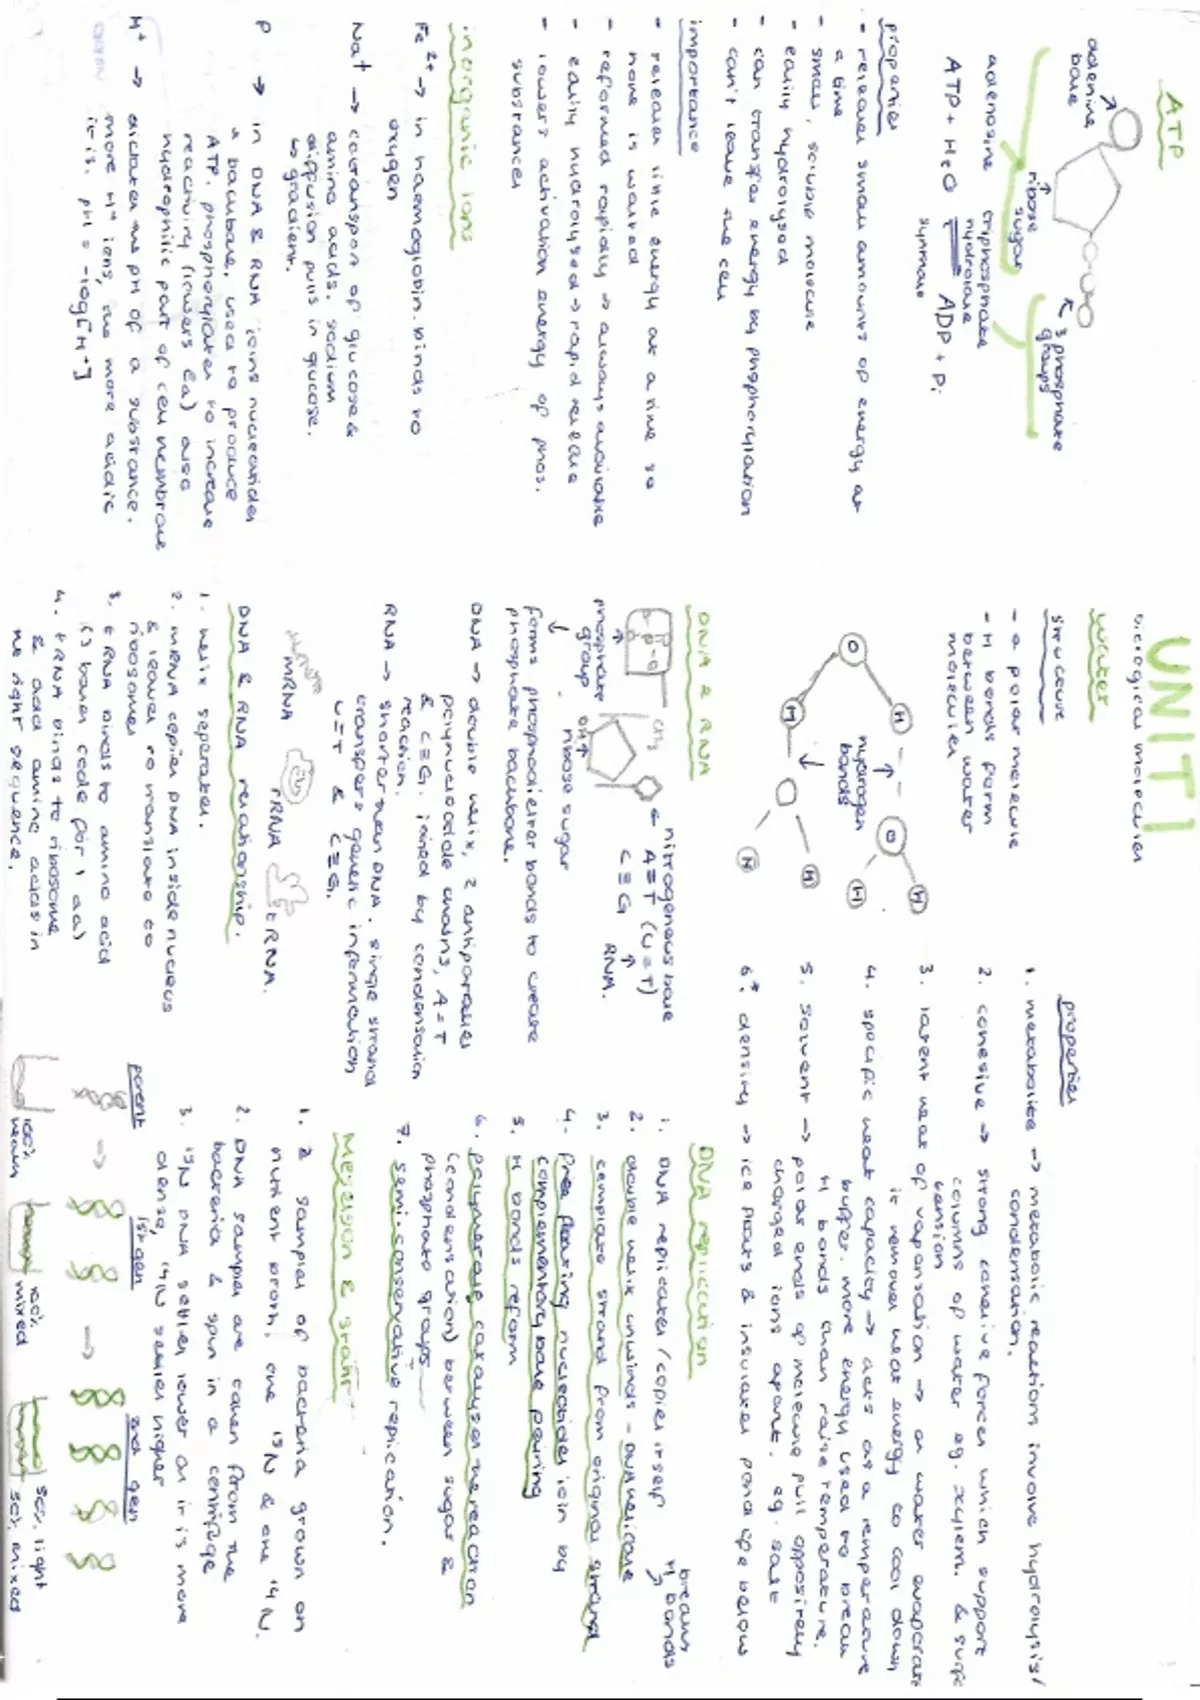 UNIT 1
biological molecules
water
structure
- a polar molecule
- H bonds form
between water
molecules
O
H
H
O
H
H
H
H
hydrogen
bonds
properties
1. metabolite → metabolic reactions involve hydrolysis/
condensation.
2. cohesive → strong cohesive forces which support
columns of water eg. xylem. &
tension
3. latent heat of vaporisation → as water evaporates
it removes heat energy to cool down
4. specific heat capacity → acts as a temperature
buffer. more energy used to break
H bonds than raise temperature.
5. solvent → polar ends of molecule pull oppositely
charged ions apart. eg. salt
6.* density → ice floats & insulates pond life below
ATP
adenine
base
ribose
sugar
3 phosphate
groups
adenosine triphosphate
hydrolase
ATP + H2O ADP + Pi
synthase
properties
- releases small amounts of energy at
a time
- small, soluble molecule
- easily hydrolysed
- can transfer energy by phosphorylation
- can't leave the cell
importance
- releases little energy at a time so
none is wasted
- reformed rapidly → always available
- easily hydrolysed → rapid release
- lowers activation energy of phos.
substances
inorganic ions
Fe2+ → in haemoglobin. binds to
oxygen
Na+ → cotransport of glucose &
amino acids. sodium
diffusion pulls in glucose.
↳ gradient.
P → in DNA & RNA joins nucleotides
& backbone, used to produce
ATP. phosphorylates to increase
reactivity (lowers Ea) also
hydrophilic part of cell membrane
H+ → dictates the pH of a substance.
more H+ ions, the more acidic
it is. pH = -log[H+]
DNA & RNA
phosphate
group
OH
ribose sugar
nitrogenous base
A=T (U=T)
C≡G
RNA.
forms phosphodiester bonds to create
phosphate backbone.
DNA → double helix, 2 antiparallel
polynucleotide chains, A=T
& C≡G. joined by condensation
reaction.
RNA → shorter than DNA. single strand
transfers genetic information
U=T & C≡G.
mRNA
rRNA
tRNA.
DNA & RNA relationship.
1. helix seperates.
2. mRNA copies DNA inside nucleus
& leaves to translate to
ribosomes
3. tRNA binds to amino acid
(3 bases code for 1 aa)
4. tRNA binds to ribosome
& add amino acids in
the right sequence.
DNA replication
1. DNA replicates/copies itself
breaks
H bonds
2. double helix unwinds - DNA helicase
3. template strand from original strand
4. free floating nucleotides join by
complementary base pairing
5. H bonds reform
6. polymerase catalyses the reaction
(condensation) between sugar &
phosphate groups
7. semi-conservative replication.
Meselson & stahl
1. 2 samples of bacteria grown on
nutrient broth, one 15N & one 14N.
2. DNA samples are taken from the
bacteria & spun in a centrifuge
3. 15N DNA settles lower as it is more
dense, 14N settles higher
parent
1st gen
2nd gen
100%
heavy
100%
mixed
50% light
50% mixed